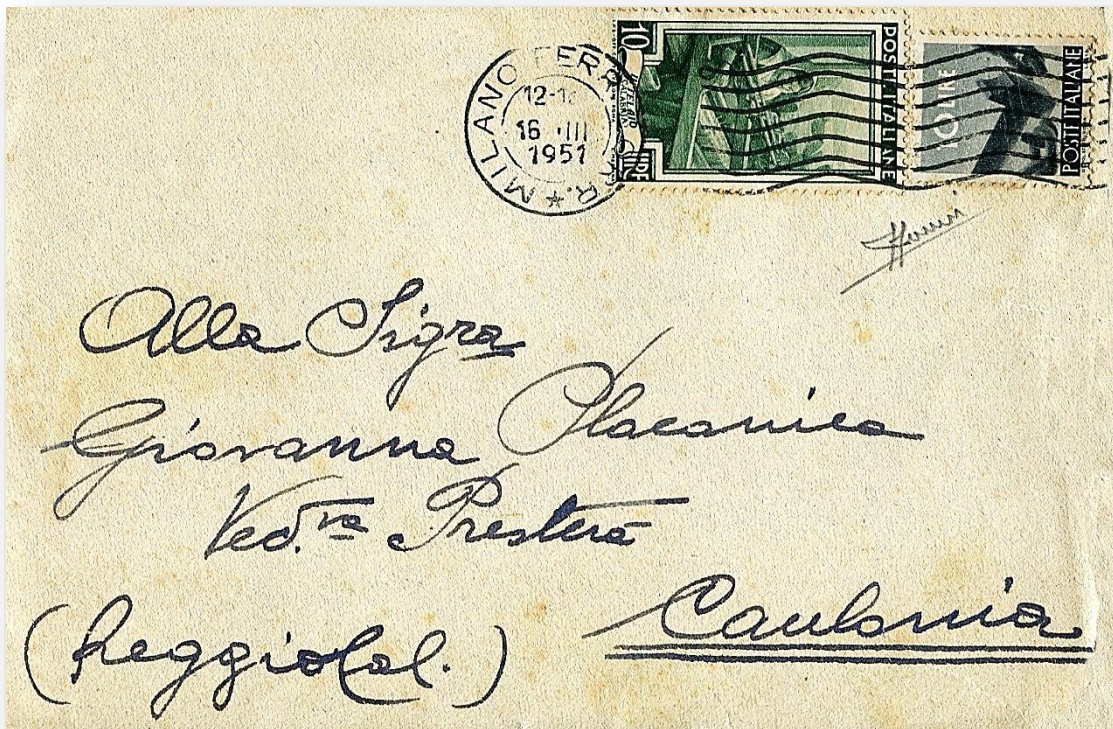 MILANO FERR
12-1
16 III
1951
10
POSTE ITALIANE
10 LIRE
POSTE ITALIANE
Alla Sigra
Giovanna Placanica
Ved.va Presterà
Caulonia
(Reggio Cal.)